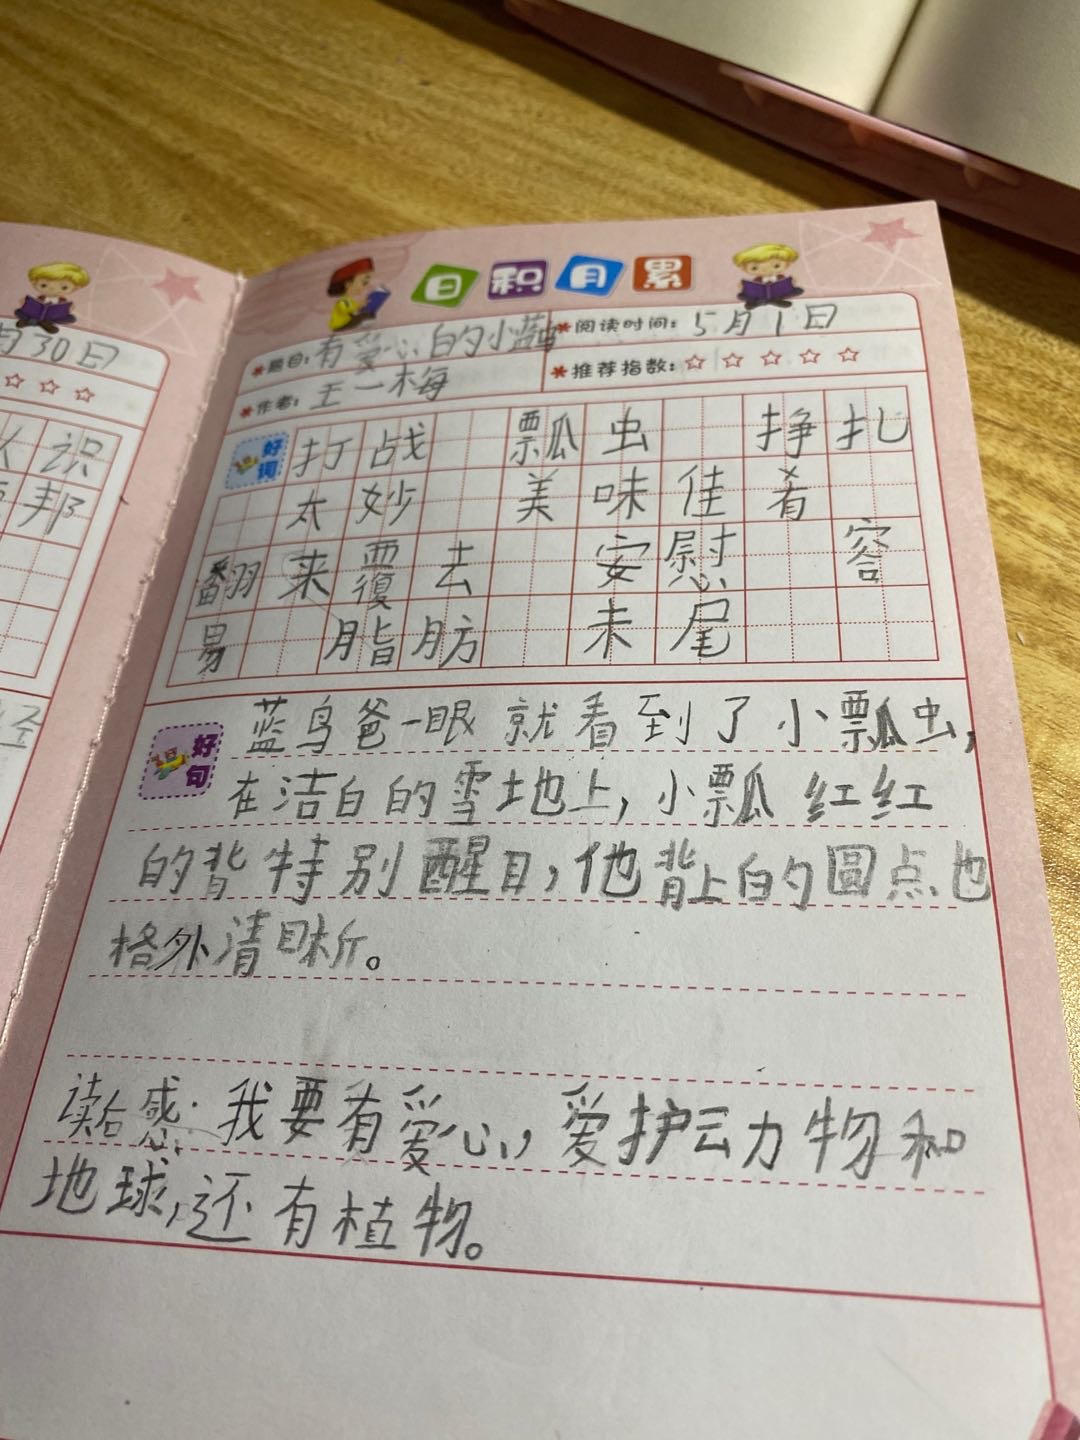 日积月累
月30日
识
邦
题目：有爱心的小蓝鸟
阅读时间：5月1日
作者：王一梅
推荐指数：☆☆☆☆☆
好词 打战 瓢虫 挣扎
太妙 美味佳肴
翻来覆去 安慰 容
易 脂肪 未尾
好句
蓝鸟爸一眼就看到了小瓢虫，
在洁白的雪地上，小瓢 红红
的背特别醒目，他背上的圆点也
格外清晰。
读后感：我要有爱心，爱护动物和
地球，还有植物。